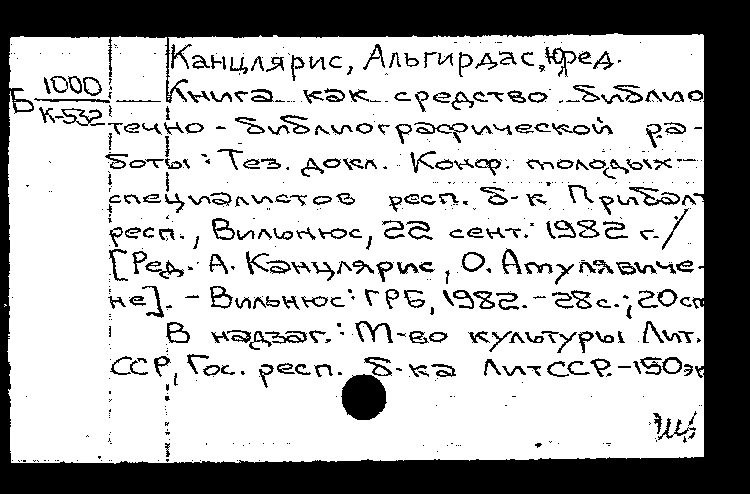 Канцлярис, Альгирдас, ред.
Б 1000
К-532
Книга как средство библио
течно-библиографической ра-
боты: Тез. докл. Конф. молодых
специалистов респ. б-к Прибалт
респ., Вильнюс, 22 сент. 1982 г. /
[Ред. А. Канцлярис, О. Амулявиче-
не]. - Вильнюс: ГРБ, 1982. - 28 с.; 20 см
В надзаг.: М-во культуры Лит.
ССР, Гос. респ. б-ка ЛитССР. - 150 эк